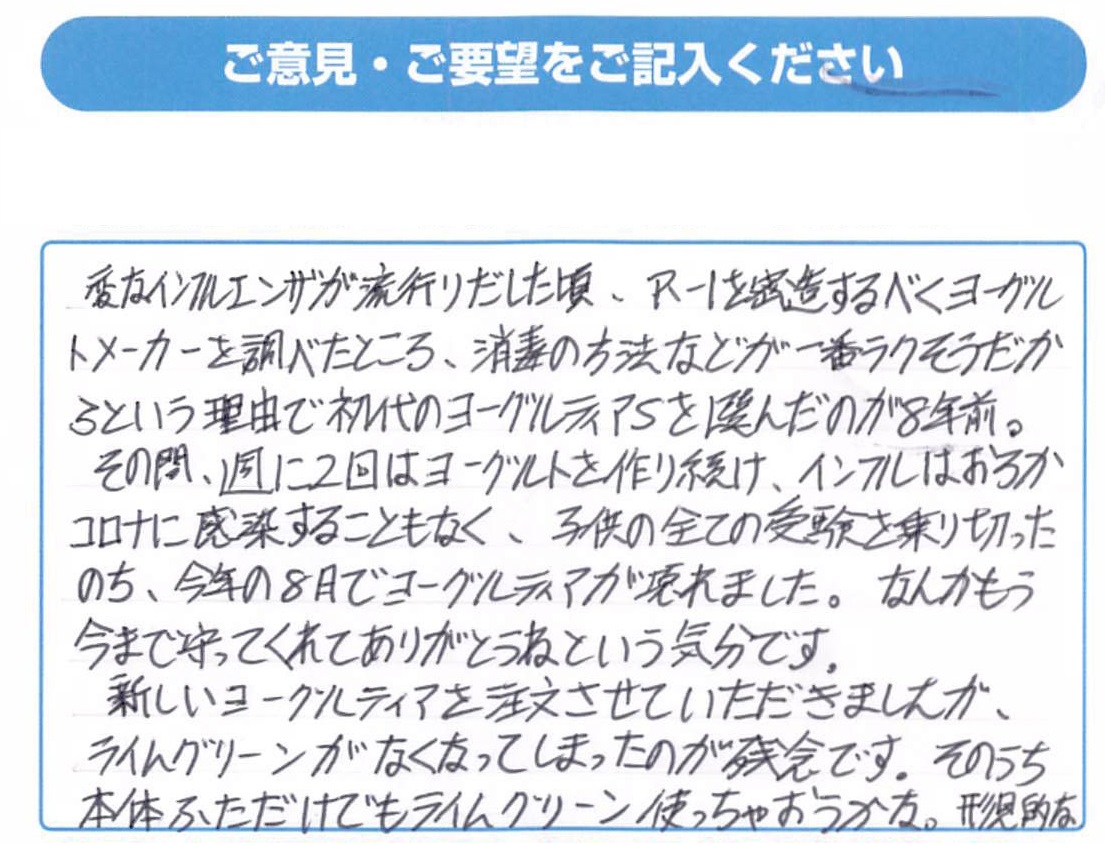 ご意見・ご要望をご記入ください
変なインフルエンザが流行りだした頃、R-1を密造するべくヨーグル
トメーカーを調べたところ、消毒の方法などが一番ラクそうだか
らという理由で初代のヨーグルティアSを選んだのが8年前。
その間、週に2回はヨーグルトを作り続け、インフルはおろか
コロナに感染することもなく、子供の全ての受験を乗り切った
のち、今年の8月でヨーグルティアが壊れました。なんかもう
今まで守ってくれてありがとうねという気分です。
新しいヨーグルティアを注文させていただきましたが、
ライムグリーンがなくなってしまったのが残念です。そのうち
本体ふただけでもライムグリーン使っちゃおうかな。形見的な